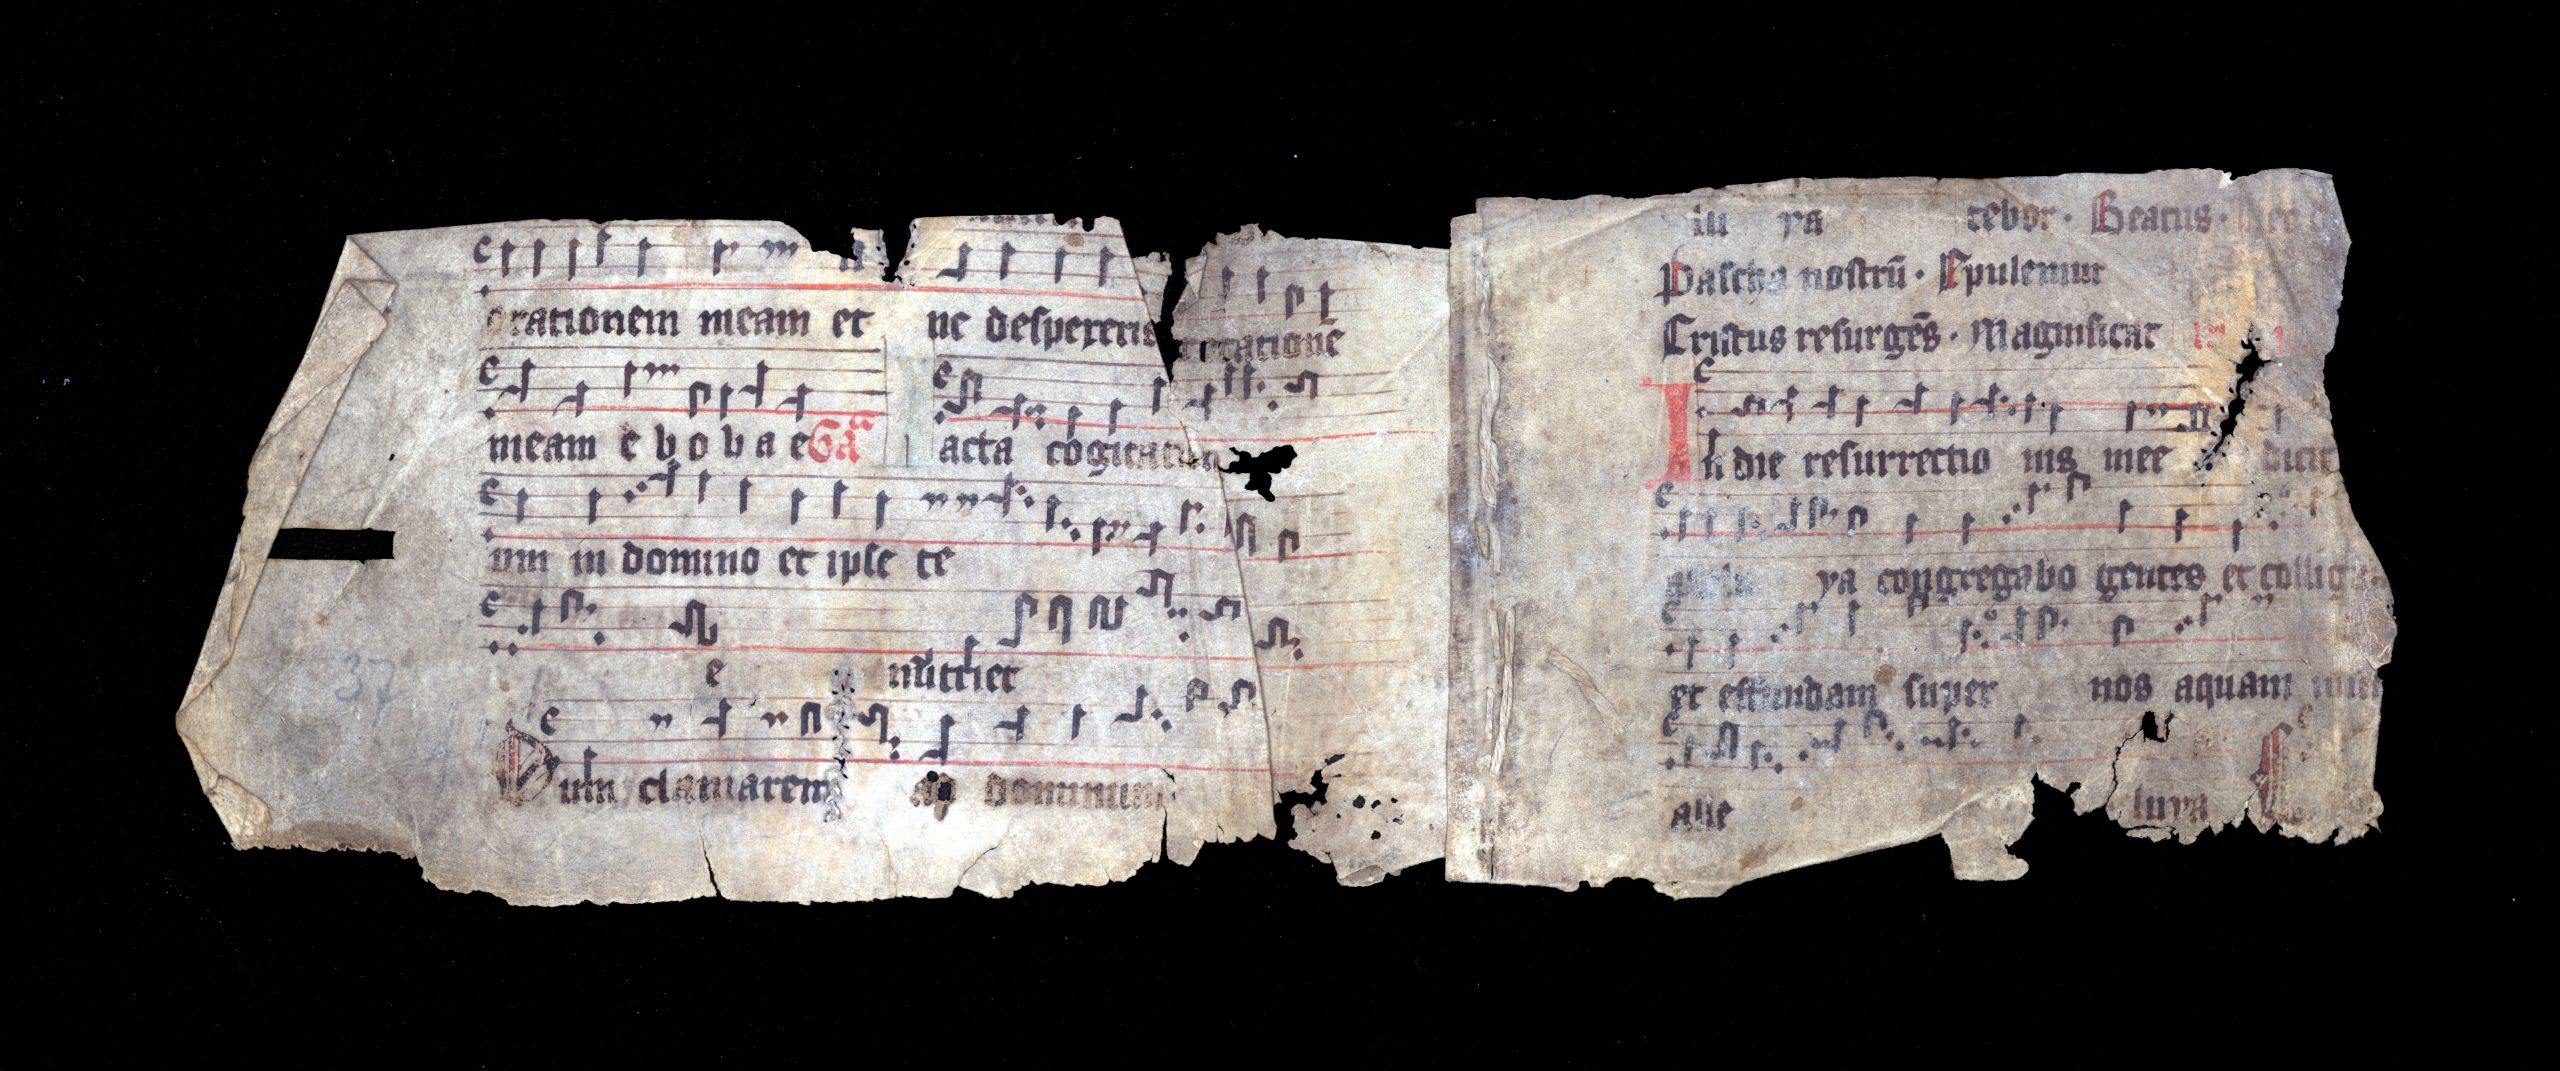 orationem meam et ne despexeris
meam e v o v a e Gaᵃ Iacta cogitatu
um in domino et ipse te
e nutriet
Dum clamarem ad dominum
37
ya tebor · Beatus ·
Pascha nostrū · Epulemur
Cristus resurgēs · Magnificat
In die resurrectio nis mee dicit
ya congregabo gentes et collig
et effundam super nos aquam
alle luya